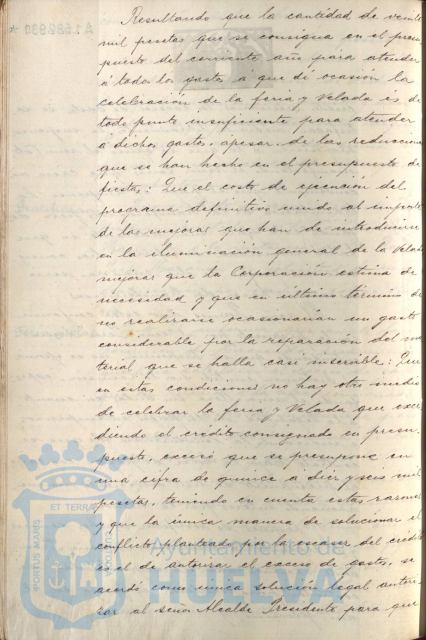 Resultando que la cantidad de veinte
mil pesetas que se consigna en el presu-
puesto del corriente año para atender
á todos los gastos á que dé ocasión la
celebración de la feria y Velada es de
todo punto insuficiente para atender
a dichos gastos, apesar de las reducciones
que se han hecho en el presupuesto de
fiestas; Que el costo de ejecución del
programa definitivo unido al importe
de las mejoras que han de introducirse
en la iluminación general de la Velada
mejoras que la Corporación estima de
necesidad y que en ultimo termino de
no realizarse ocasionarian un gasto
considerable por la reparación del ma-
terial que se halla casi inservible: Que
en estas condiciones no hay otro medio
de celebrar la feria y Velada que exce-
diendo el crédito consignado en presu-
puesto, exceso que se presupone en
una cifra de quince á diez y seis mil
pesetas, teniendo en cuenta estas razones
y que la única manera de solucionar el
conflicto planteado por la escasez del crédito
es el de autorizar el exceso de gastos, se
acordó como unica solución legal autori-
zar al señor Alcalde Presidente para que
A1582930 *
PORTUS MARIS
ET TERRAE
CUSTODIA
Ayuntamiento de
HUELVA